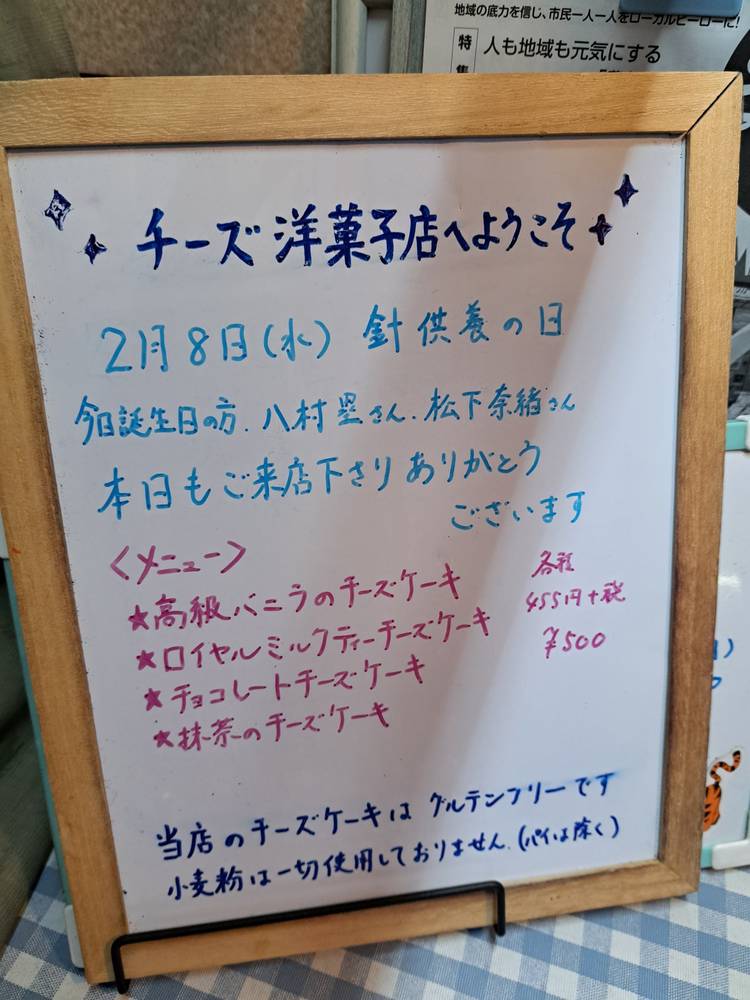 地域の底力を信じ、市民一人一人をローカルヒーローに!
特集
人も地域も元気にする
チーズ洋菓子店へようこそ
2月8日(水) 針供養の日
今日誕生日の方、八村塁さん、松下奈緒さん
本日もご来店下さりありがとう
ございます
<メニュー>
★高級バニラのチーズケーキ
★ロイヤルミルクティーチーズケーキ
★チョコレートチーズケーキ
★抹茶のチーズケーキ
各種
455円+税
¥500
当店のチーズケーキはグルテンフリーです
小麦粉は一切使用しておりません。(パイは除く)